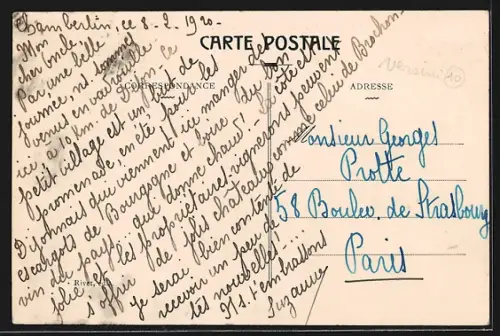 Chambertin, ce 8-2-1920-
CARTE POSTALE
CORRESPONDANCE
ADRESSE
Mon
cher oncle,
Par une belle
journée, ns sommes
venus en vadrouille
ici à 10 km. de Dijon - ce
petit village est un but de
promenade, en été, pour les
Dijonnais qui viennent ici manger des
escargots de Bourgogne et boire du bon
vin du pays qui donne chaud! La côte est
jolie et les propriétaires-vignerons peuvent
s'offrir de jolis châteaux comme celui de Brochon-
je serai bien contente de
recevoir un peu de
tes nouvelles-...
Ns t'embrassons
Suzanne
Monsieur Georges
Protte
58 Boulev. de Strasbourg
Paris
Rivet,